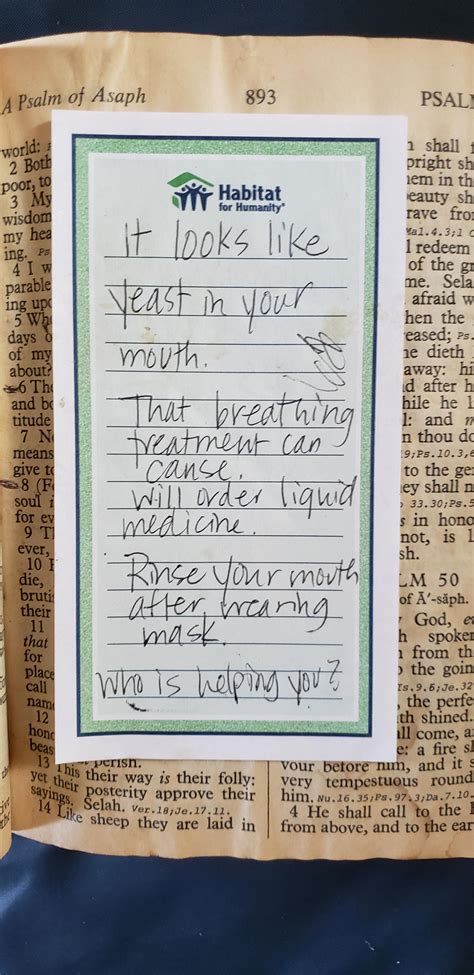 A Psalm of Asaph
893
PSAL
world:
2 Both
poor, to
3 My
wisdom
my hea
ing. Ps
4 I w
parable
ing upo
5 Whe
days o
of my
about?
6 The
and bo
titude
7 No
means
give to
8 (F
soul i
for ev
9 T
ever,
10 F
die,
bruti
their
11
that
for
place
call
name
12
hono
beas
13 This their way is their folly:
yet their posterity approve their
sayings. Selah. Ver.18;Je.17.11.
14 Like sheep they are laid in
Habitat
for Humanity®
it looks like
yeast in your
mouth.
That breathing
treatment can
cause.
will order liquid
medicine.
Rinse your mouth
after wearing
mask.
who is helping you?
shall
pright sh
em in th
eauty sh
rave fro
Mal.4.3;1
l redeem
of the gr
me. Sela
afraid w
hen the
eased; Ps
he dieth
away: hi
d after h
hile he l
l: and m
n thou do
9;Ps.10.3,6
to the ge
ey shall n
33.30;Ps.5
s in hono
not, is l
sh.
LM 50
of Ā'-săph.
God, ev
spoken
from th
the goin
Ts.9.6;Je.32
the perfe
th shined.
ll come, a
e: a fire s
vour before him, and it s
very tempestuous round
him. Nu.16.35;Ps.97.3;Da.7.10.
4 He shall call to the
from above, and to the ear